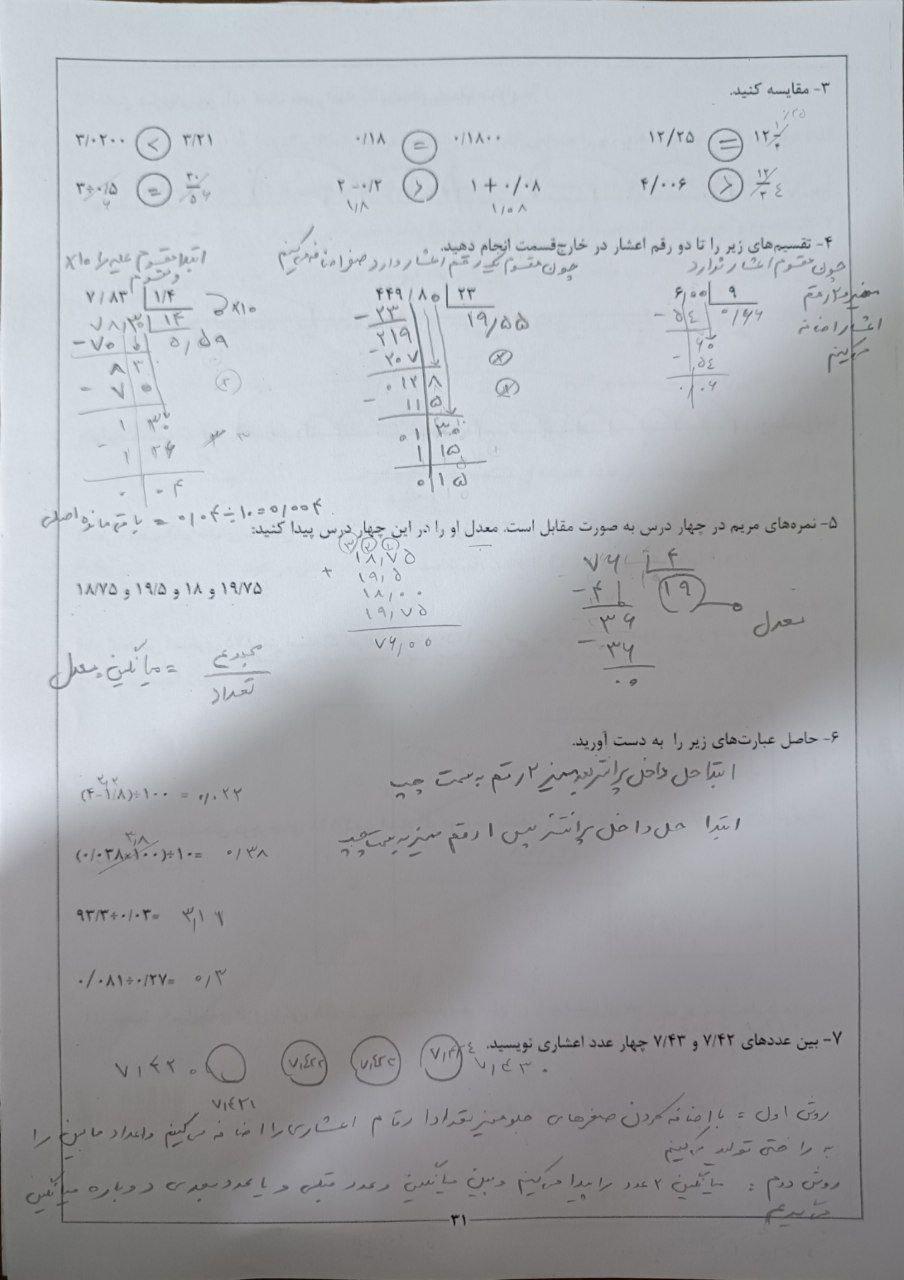 ۳- مقایسه کنید.
۳/۰۲۰۰ < ۳/۲۱
۰/۱۸ = ۰/۱۸۰۰
۱۲/۲۵ =
۳÷۰/۵ =
۲-۰/۲
۱/۸
۱+۰/۰۸
۱/۰۸
۴/۰۰۶
۴- تقسیم‌های زیر را تا دو رقم اعشار در خارج‌قسمت انجام دهید.
چون مقسوم یک رقم اعشار دارد صفر اضافه می‌کنیم
چون مقسوم اعشار ندارد
اعشار اضافه
می‌کنیم
۷/۸۳ ۱/۴ ×۱۰
۷۸,۳۰ ۱۴
- ۷۰ ۵,۵۹
۸ ۳
- ۷ ۰
۱ ۳۰
- ۱ ۲۶
۰ ۰۴
۴۴۹/۸۰ ۲۳
- ۲۳ ۱۹,۵۵
۲۱۹
- ۲۰۷
۰۱۲ ۸
- ۱۱ ۵
۰۱ ۳۰
۱ ۱۵
۰ ۱۵
۶,۰۰ ۹
- ۵ ۴ ۰/۶۶
۶۰
- ۵۴
۰/۰۶
باقی مانده اصلی = ۰,۰۴÷۱۰=۰,۰۰۴
۵- نمره‌های مریم در چهار درس به صورت مقابل است. معدل او را در این چهار درس پیدا کنید:
۱۹/۷۵ و ۱۸ و ۱۹/۵ و ۱۸/۷۵
۱۸,۷۵
+ ۱۹,۵
۱۸,۰۰
۱۹,۷۵
۷۶,۰۰
۷۶ ۴
- ۴ ۱۹
۳۶
- ۳۶
۰۰
معدل
میانگین = مجموع
تعداد
۶- حاصل عبارت‌های زیر را به دست آورید.
(۴-۱/۸)÷۱۰۰ = ۰,۰۲۲
ابتدا حل داخل پرانتز بعد ممیز ۲ رقم به سمت چپ
۳,۸
(۰/۰۳۸×۱۰۰)÷۱۰= ۰/۳۸
ابتدا حل داخل پرانتز پس ۱ رقم ممیز به سمت چپ
۹۳/۳÷۰/۰۳=
۰/۰۸۱÷۰/۲۷= ۰,۳
۷- بین عددهای ۷/۴۲ و ۷/۴۳ چهار عدد اعشاری نویسید.
۷,۴۲۰ ۷,۴۳۰
۷,۴۲۱
روش اول = با اضافه کردن صفرهای جلو ممیز تعداد ارقام اعشاری را اضافه می‌کنیم و اعداد مابین را
به راحتی تولید می‌کنیم
روش دوم : میانگین ۲ عدد را پیدا می‌کنیم و بین میانگین و عدد قبلی و یا عدد بعدی دوباره میانگین
۳۱